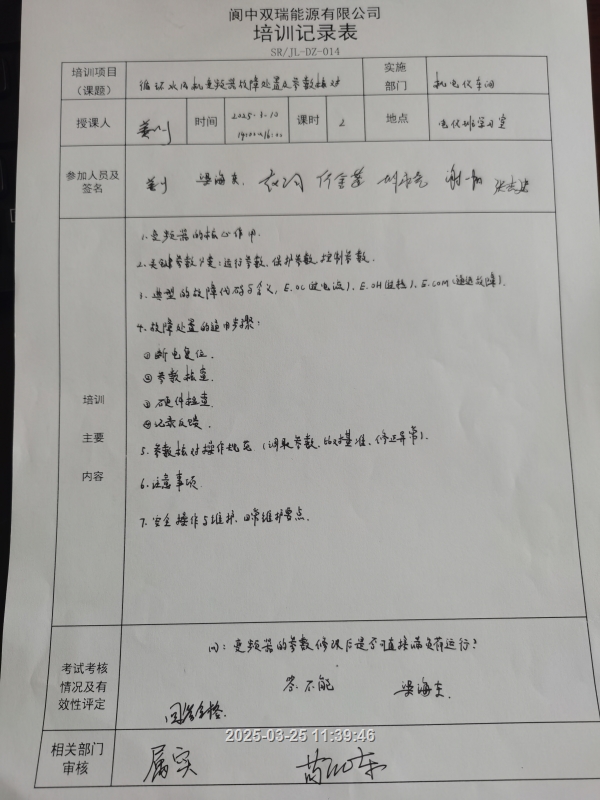 阆中双瑞能源有限公司
培训记录表
SR/JL-DZ-014
培训项目（课题） 循环水风机变频器故障处置及参数核对 实施部门 机电仪车间
授课人 时间 2025. 14:00~16:00 课时 2 地点 电仪班学习室
参加人员及签名 梁海东
培训主要内容
1.变频器的核心作用.
2.关键参数分类:运行参数、保护参数、控制参数.
3.典型的故障代码与含义, E.OC(过电流)、E.OH(过热)、E.COM(通迅故障).
4.故障处置的通用步骤:
①断电复位.
②参数核查.
③硬件检查.
④记录反馈.
5.参数核对操作规范(调取参数、比对基准、修正异常).
6.注意事项.
7.安全操作与维护、日常维护要点.
考试考核情况及有效性评定
问:变频器的参数修改后是否可直接满负荷运行?
答:不能 梁海东.
回答合格.
2025-03-25 11:39:46
相关部门审核 属实